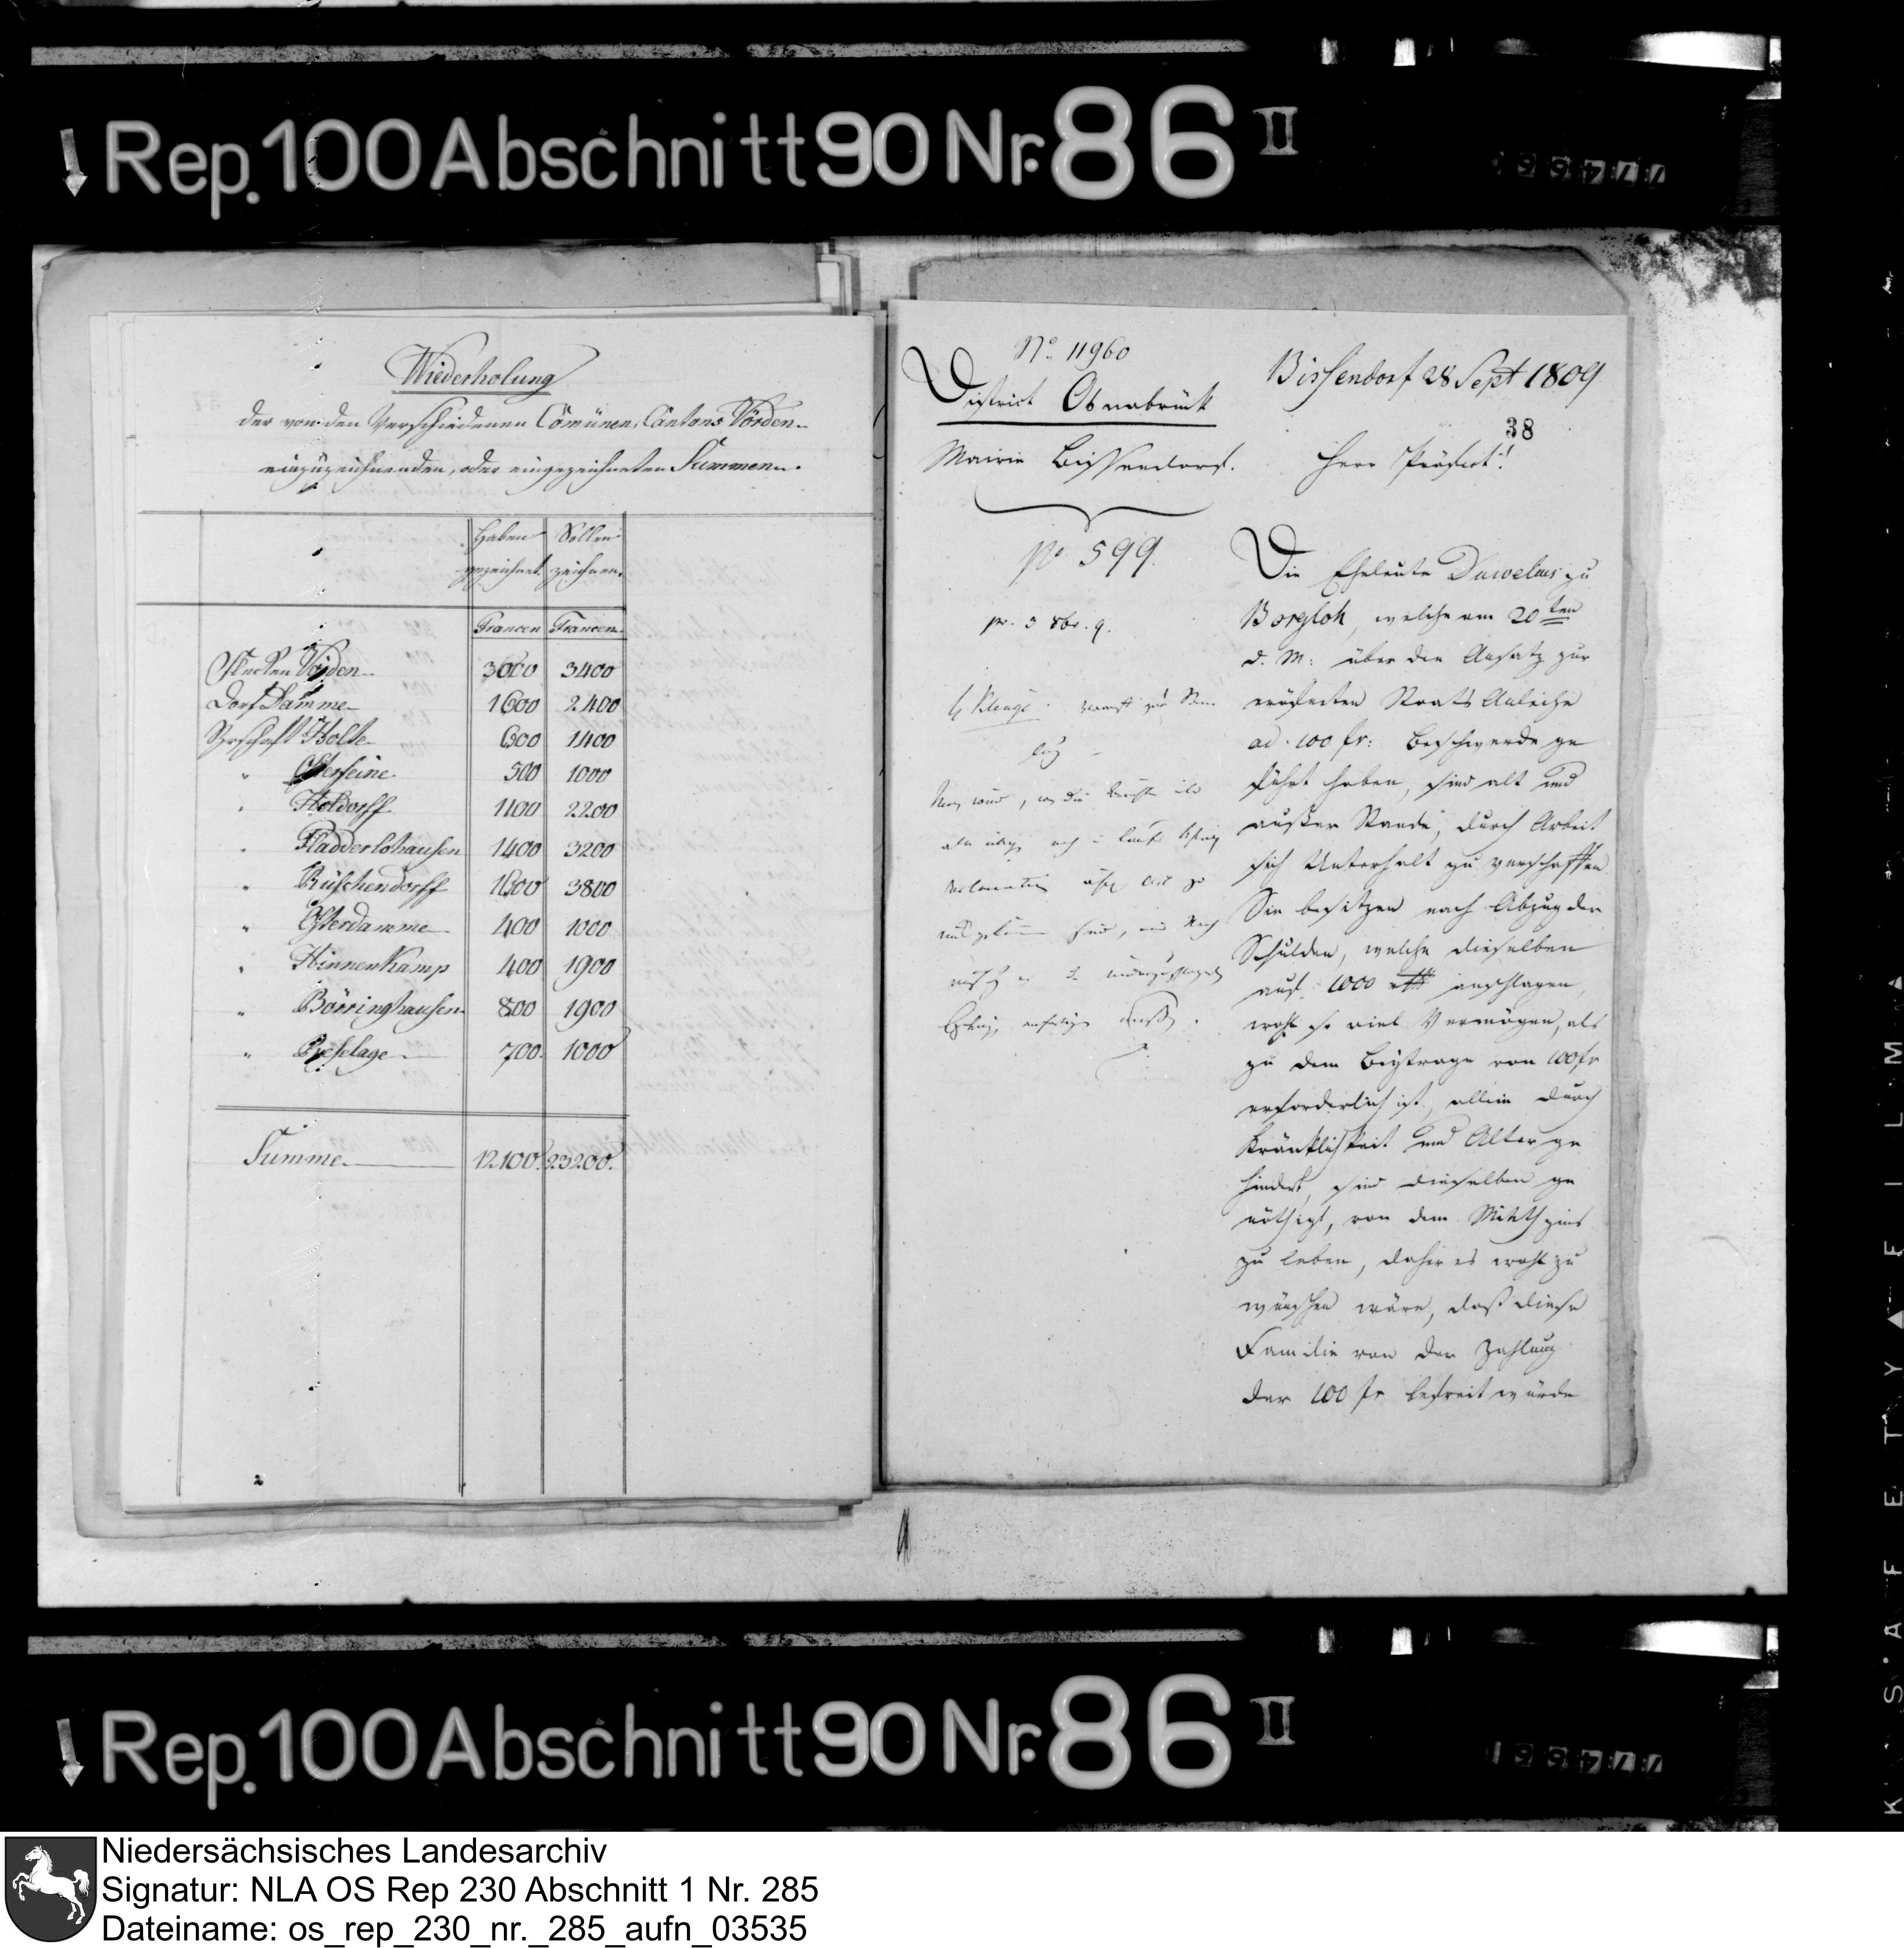 Rep. 100 Abschnitt 90 Nr. 86 II
Wiederholung
der von den Verschiedenen Comünen, Cantons Vörden
einzuzeichnenden, oder eingezeichneten Summen.
Haben Sollen
gezeichnet. zeichnen.
Francen Francen.
Flecken Vörden 3000 3400
Dorf Damme 1600 2400
Brschaft Holte 600 1400
" Osterfeine 500 1000
" Holdorff 1100 2200
" Fladderlohausen 1400 3200
" Rüschendorff 1600 3800
" Osterdamme 400 1000
" Hinnenkamp 400 1900
" Börringhausen 800 1900
" Reselage 700. 1000
Summe 12100. 23200.
No. 11960
District Osnabrück
Mairie Bissendorf.
No 599.
pr. 3 8br. 9.
Bissendorf 28 Sept 1809
38
Herr Präfect!
Die Eheleute Duwelius zu
Borgloh, welche am 20ten
d. M: über den Ansatz zur
eröfneten Staats Anleihe
ad. 100 fr: Beschwerde ge
führt haben, sind alt und
außer Stande, durch Arbeit
sich Unterhalt zu verschaffen
Sie besitzen nach Abzug der
Schulden, welche dieselben
auf 1000 rtt anschlagen,
wohl so viel Vermögen, als
zu dem Beytrage von 100 fr
erforderlich ist, allein durch
Kränklichkeit und Alter ge
hindert, sind dieselben ge
nöthigt, von dem Miethzins
zu leben, daher es wohl zu
wünschen wäre, daß diese
Familie von der Zahlung
der 100 fr befreit würde
Rep. 100 Abschnitt 90 Nr. 86 II
K · S A F E T Y ▲ F I L M ▲
Niedersächsisches Landesarchiv
Signatur: NLA OS Rep 230 Abschnitt 1 Nr. 285
Dateiname: os_rep_230_nr._285_aufn_03535